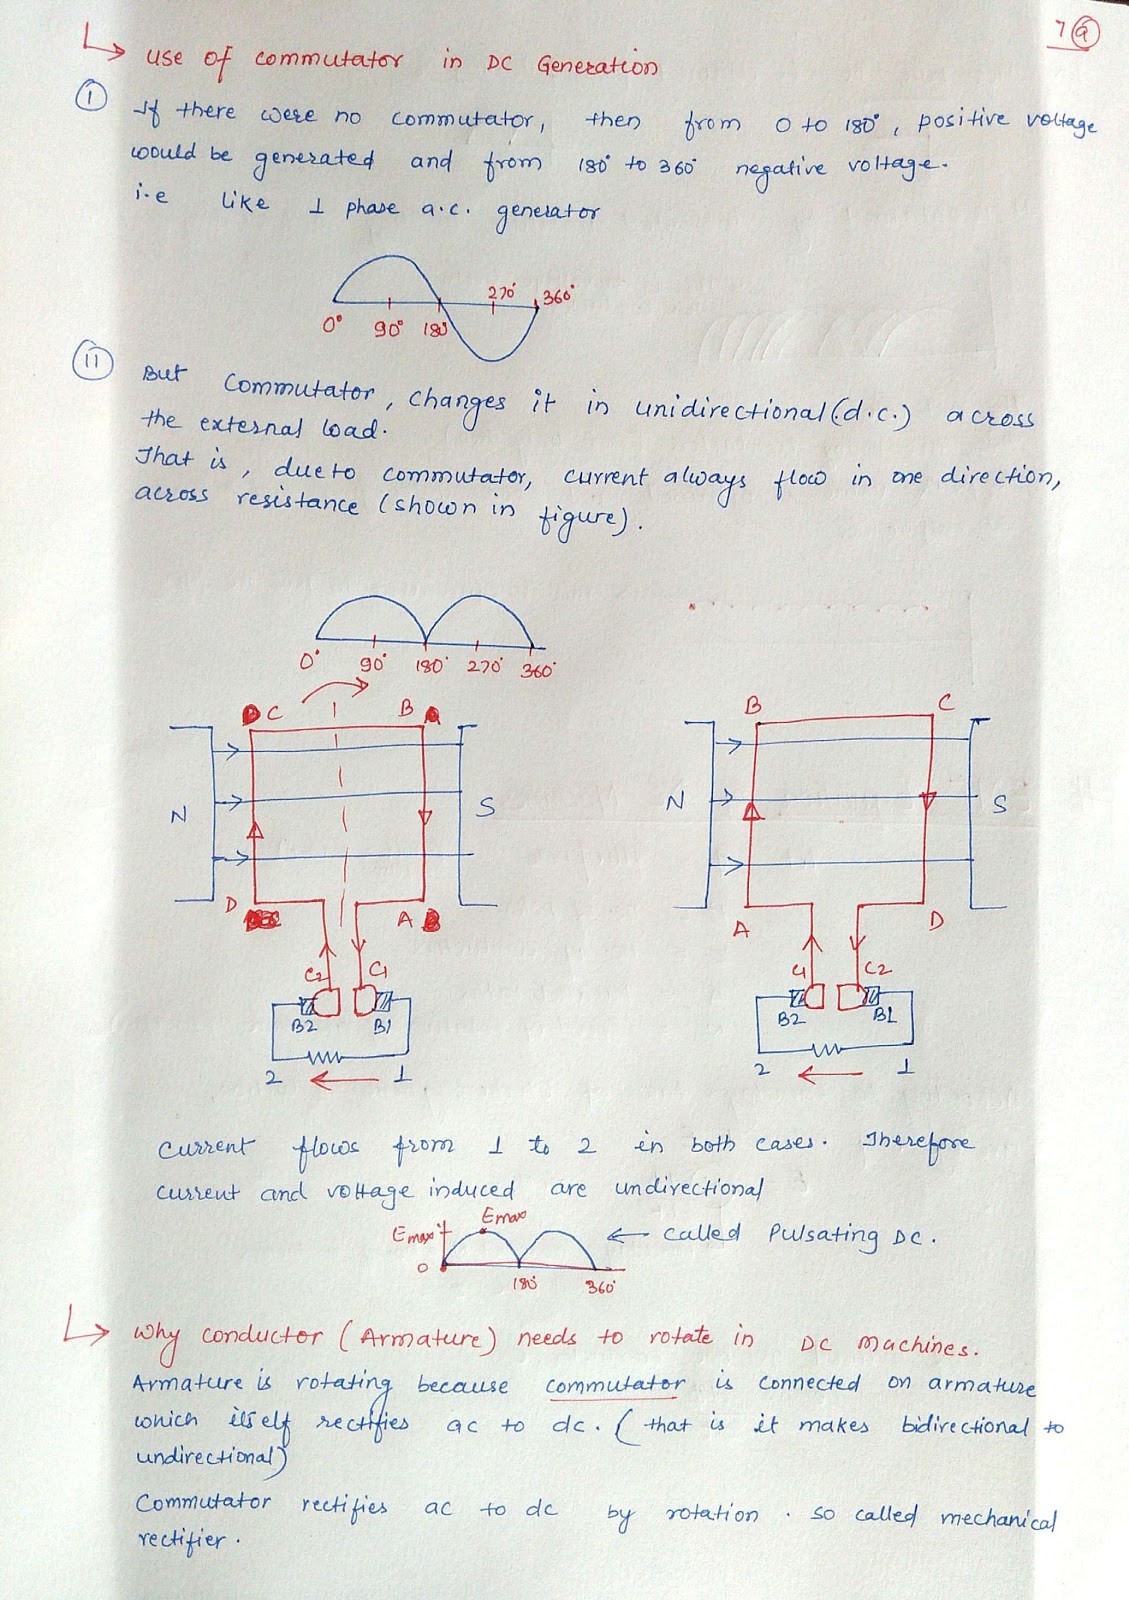 7 a
↳ use of commutator in DC Generation
I If there were no commutator, then from 0 to 180°, positive voltage
would be generated and from 180° to 360° negative voltage.
i.e like 1 phase a.c. generator
0° 90° 180° 270° 360°
II But Commutator, changes it in unidirectional (d.c.) across
the external load.
That is, due to commutator, current always flow in one direction,
across resistance (shown in figure).
0° 90° 180° 270° 360°
C B
N S
D A
C2 C1
B2 B1
2 ← 1
B C
N S
A D
C1 C2
B2 B1
2 ← 1
Current flows from 1 to 2 in both cases. Therefore
current and voltage induced are undirectional
Emax Emax ← called Pulsating DC.
0 180° 360°
↳ Why conductor (Armature) needs to rotate in DC machines.
Armature is rotating because commutator is connected on armature
which itself rectifies ac to dc. (that is it makes bidirectional to
undirectional)
Commutator rectifies ac to dc by rotation. so called mechanical
rectifier.